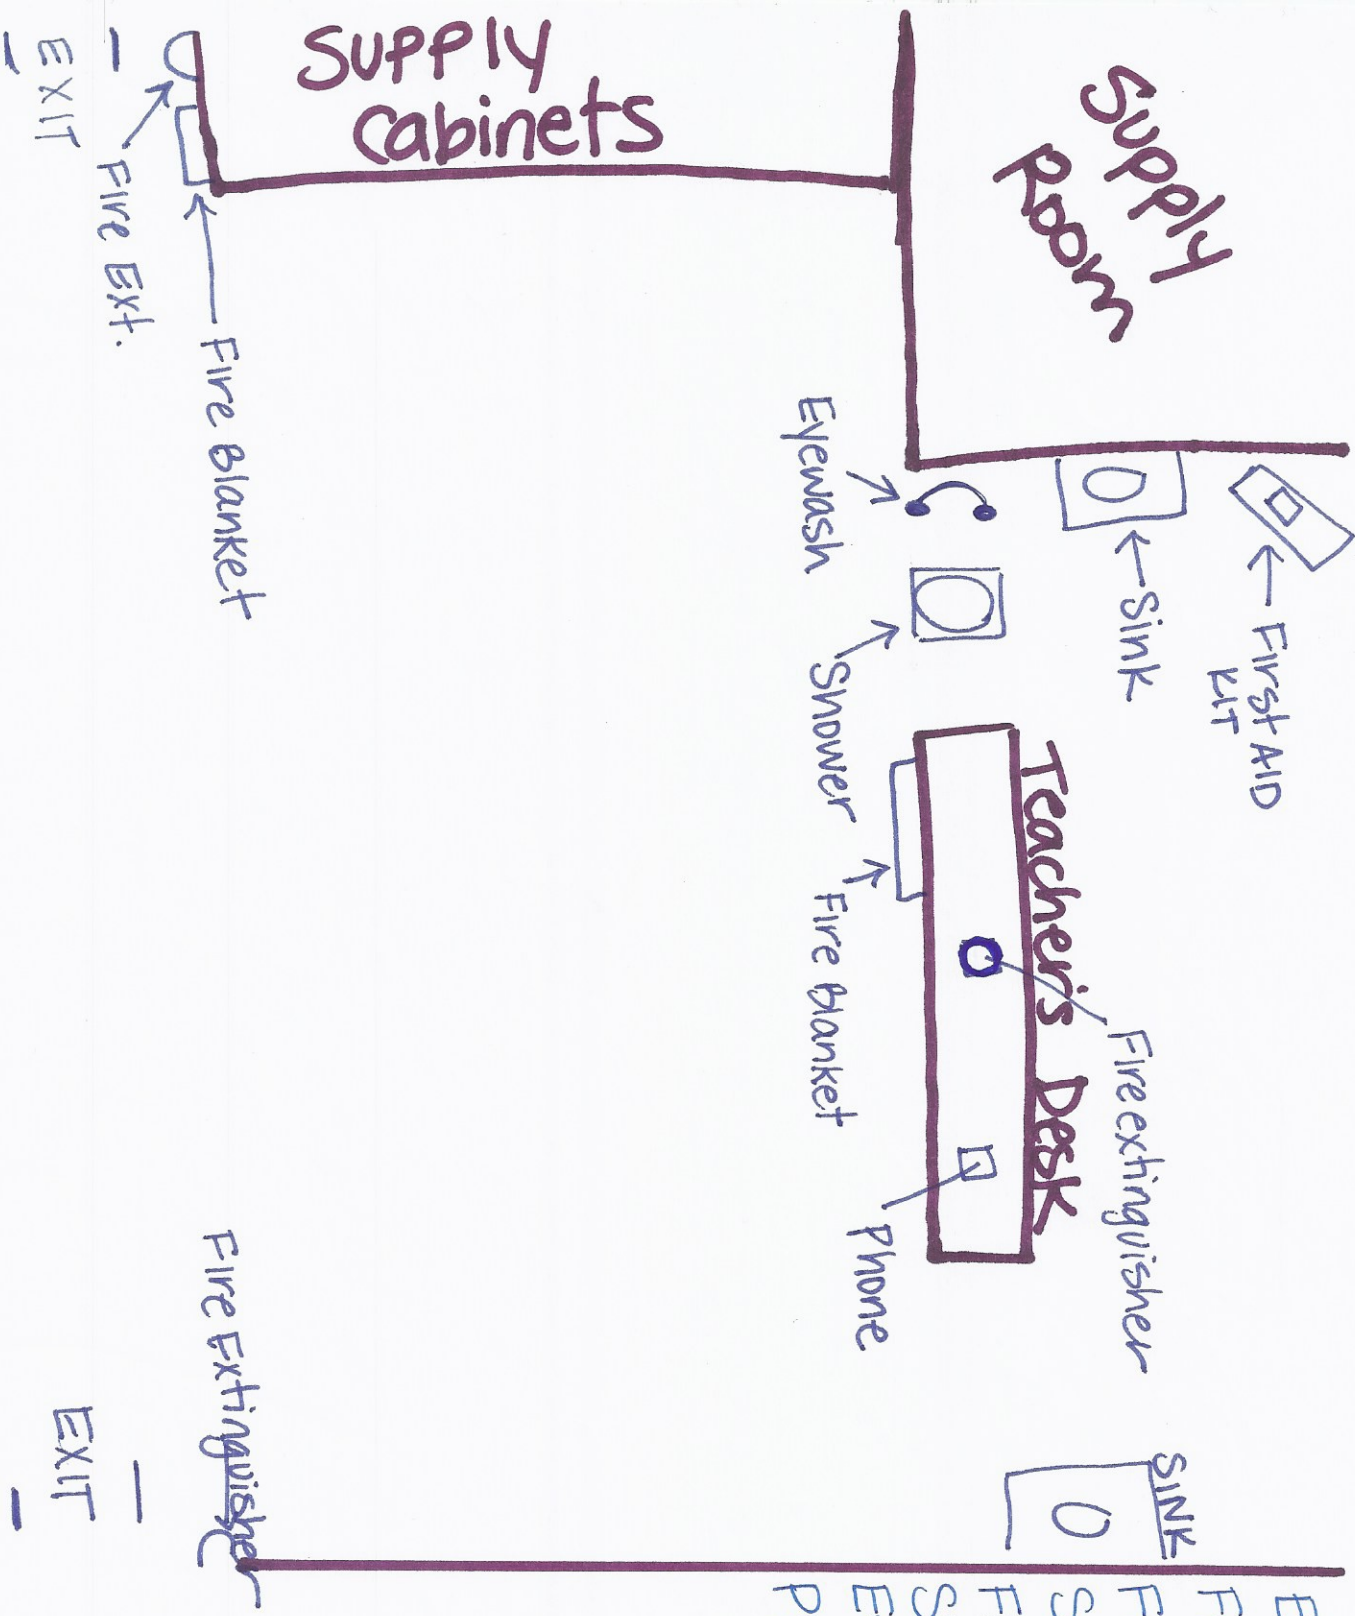 Supply
Cabinets
Supply
Room
EXIT
Fire Ext.
Fire Blanket
Eyewash
Shower
Sink
First AID
KIT
Teacher's Desk
Fire Blanket
Fire extinguisher
Phone
Fire Extinguisher
EXIT
SINK
E
F
F
S
F
S
E
P